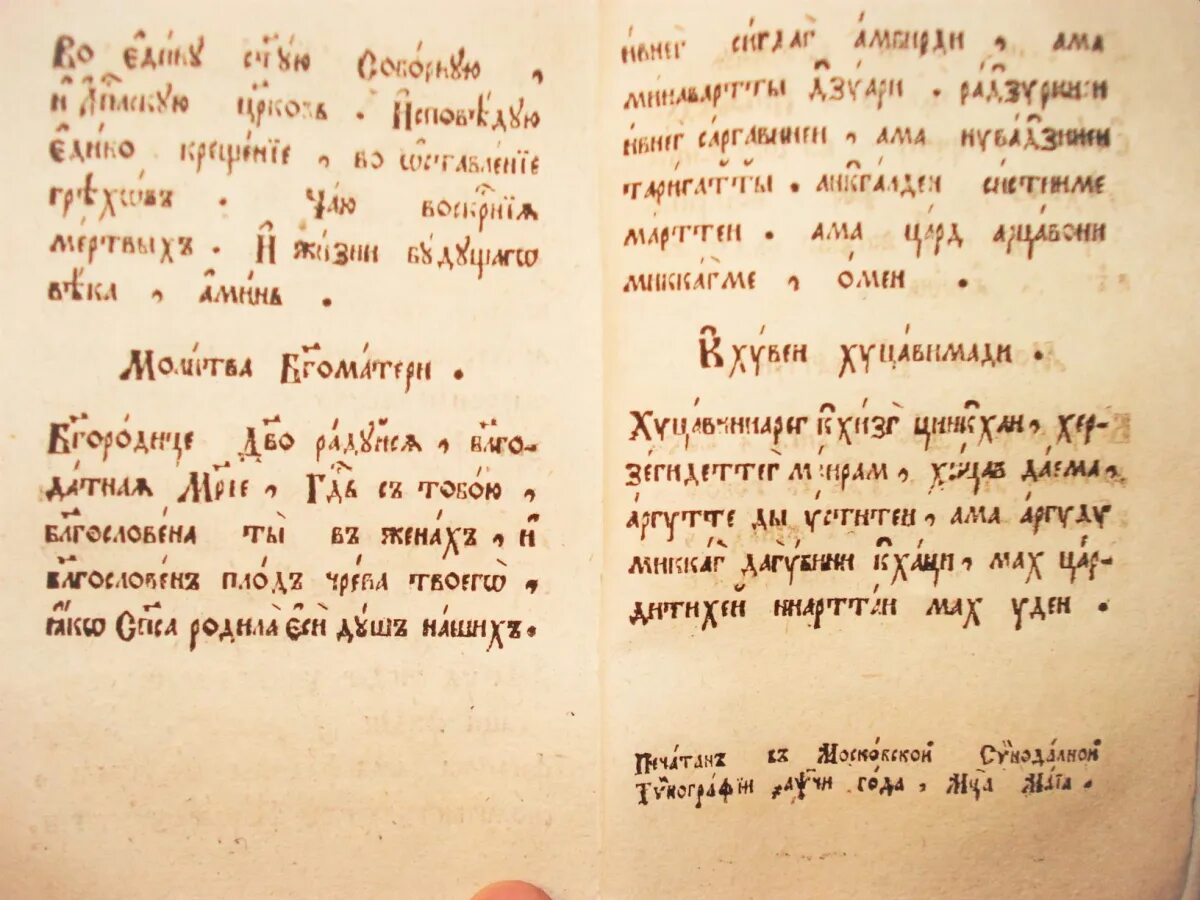 Во є҆ди́нꙋ ст҃ꙋ́ю Собо́рнꙋю ,
и҆ А҆пⷭ҇лскꙋю цр҃ковь . И҆сповѣ́дꙋю
є҆ди́но креще́нїе , во ѡ҆ставле́нїе
грѣхѡ́въ . Ча́ю воскр҃нїѧ
ме́ртвыхъ . И҆ жи́зни бꙋ́дꙋщагѡ
вѣ́ка , а҆ми́нь .
Моли́тва Бг҃ома́тери .
Бг҃оро́дице Дв҃о ра́дꙋйсѧ , бл҃го-
да́тнаѧ Мр҃їе , Гдⷭ҇ь съ тобо́ю ,
бл҃гослове́на ты̀ въ жена́хъ , и҆
бл҃гослове́нъ пло́дъ чре́ва твоегѡ̀ ,
ꙗ҆́кѡ Сп҃са родила̀ є҆сѝ дꙋ́шъ на́шихъ .
ивнег сигдаг а́мбирди , ама
минавартты дзꙋ́ари . ра́дзꙋринги
ивнег са́ргавинен , ама нꙋва́дзинен
тари́гатты . анкга́лден систинме
ма́рттен . ама ца́рд арца́вони
миккагме , о́мен .
Кхꙋ́вен хꙋца́вимади .
Хꙋца́виннарег кхи́зг цинкхан , хер-
зе́гиндеттег ма́ирам , хꙋца́в да́ема ,
а́ргꙋтте ды ꙋ́ститен , ама а́ргꙋдꙋ
миккаг дагꙋ́бини кха́ци , мах ца́р-
дитихей ниартта́н мах ꙋден .
Печа́танъ въ Моско́вской Сѵнода́лной
Тѵпогра́фїи ҂аѱч҃и го́да , Мц҃а Маїа .